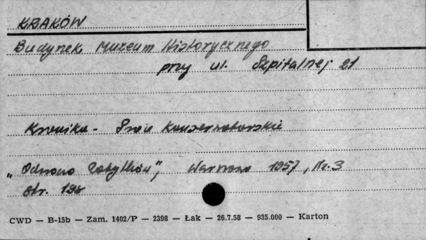 KRAKÓW
Budynek Muzeum Historycznego
przy ul. Szpitalnej 21
Kronika - Prace Konserwatorskie
"Ochrona Zabytków", Warszawa 1957, Nr. 3
str. 198
CWD — B-15b — Zam. 1402/P — 2398 — Łak — 26.7.58 — 935.000 — Karton